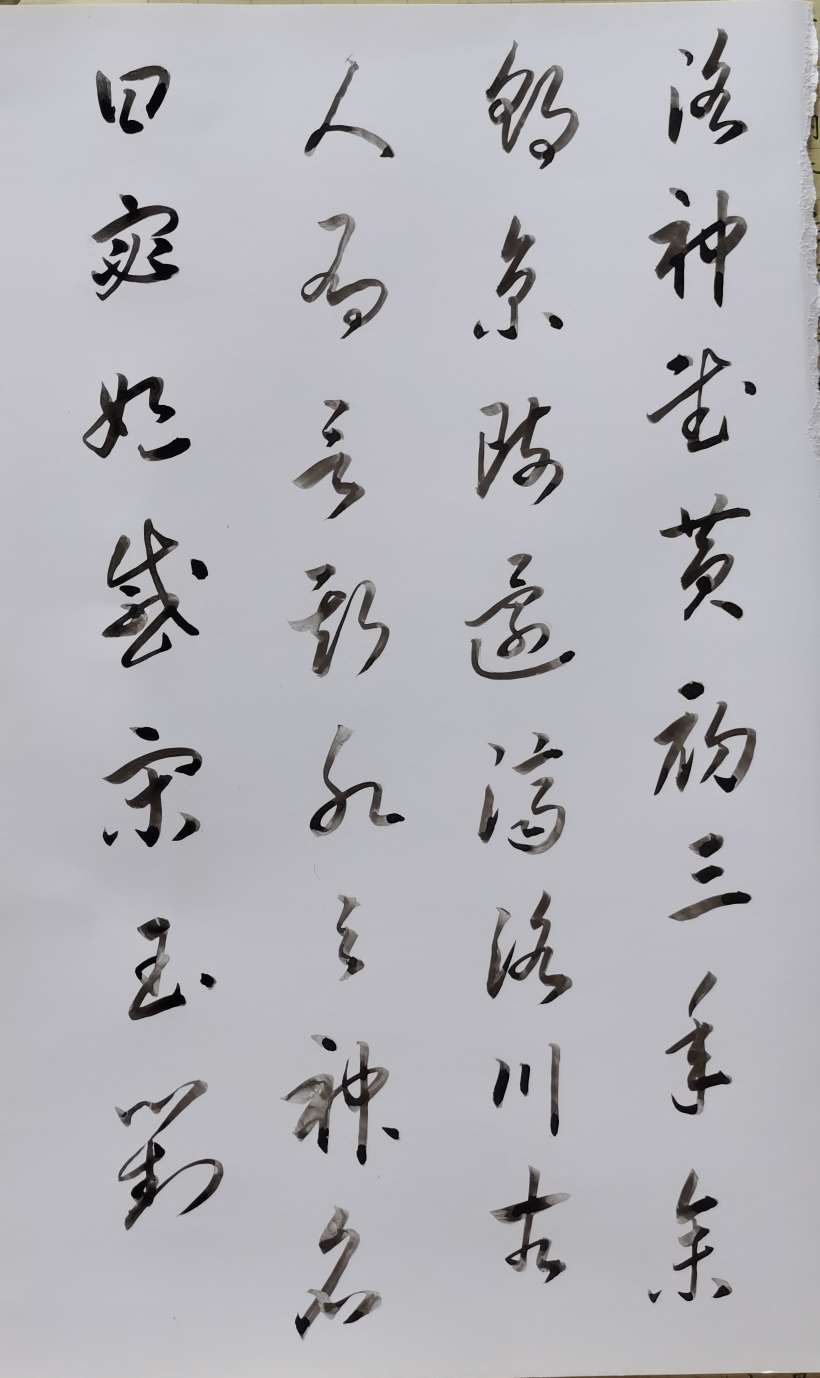 洛神賦黃初三年余
朝京師還濟洛川古
人有言斯水之神名
曰宓妃感宋玉對